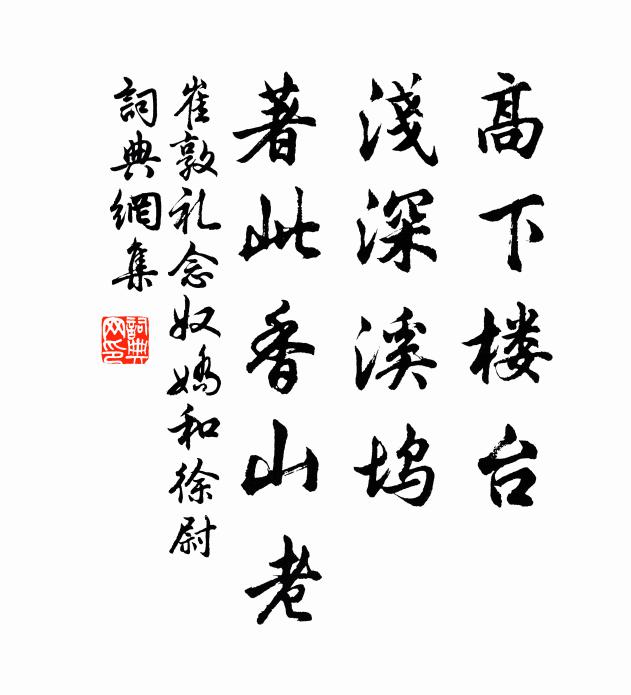 高下楼台
淺深溪坞
著此香山老
崔敦礼念奴嬌和徐尉
詞典網集
詞典网印